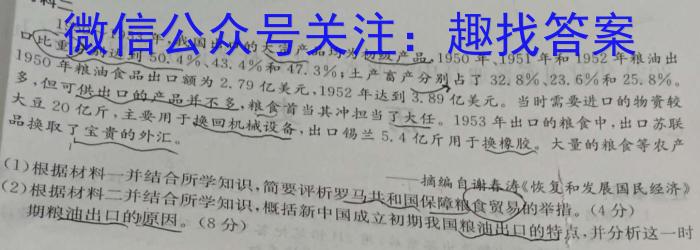 微信公众号关注：趣找答案
料二
年,我国出口的大宗产品均为初级产品,1950年、1951年和1952年粮油出
口比重分别达到50.4%、43.4%和47.3%;土产畜产分别占了32.8%、23.6%和25.8%。
1950年粮油食品出口额为2.79亿美元,1952年达到3.89亿美元。当时需要进口的物资较
多,但可供出口的产品并不多,粮食首当其冲担当了大任。1953年出口的粮食中,出口苏联
大豆20亿斤,主要用于换回机械设备,出口锡兰5.4亿斤用于换橡胶。大量的粮食等农产
品换取了宝贵的外汇。
——摘编自谢春涛《恢复和发展国民经济》
(1)根据材料一并结合所学知识,简要评析罗马共和国保障粮食贸易的举措。(4分)
(2)根据材料二并结合所学知识,概括新中国成立初期我国粮油出口的特点,并分析这一时
期粮油出口的原因。(8分)